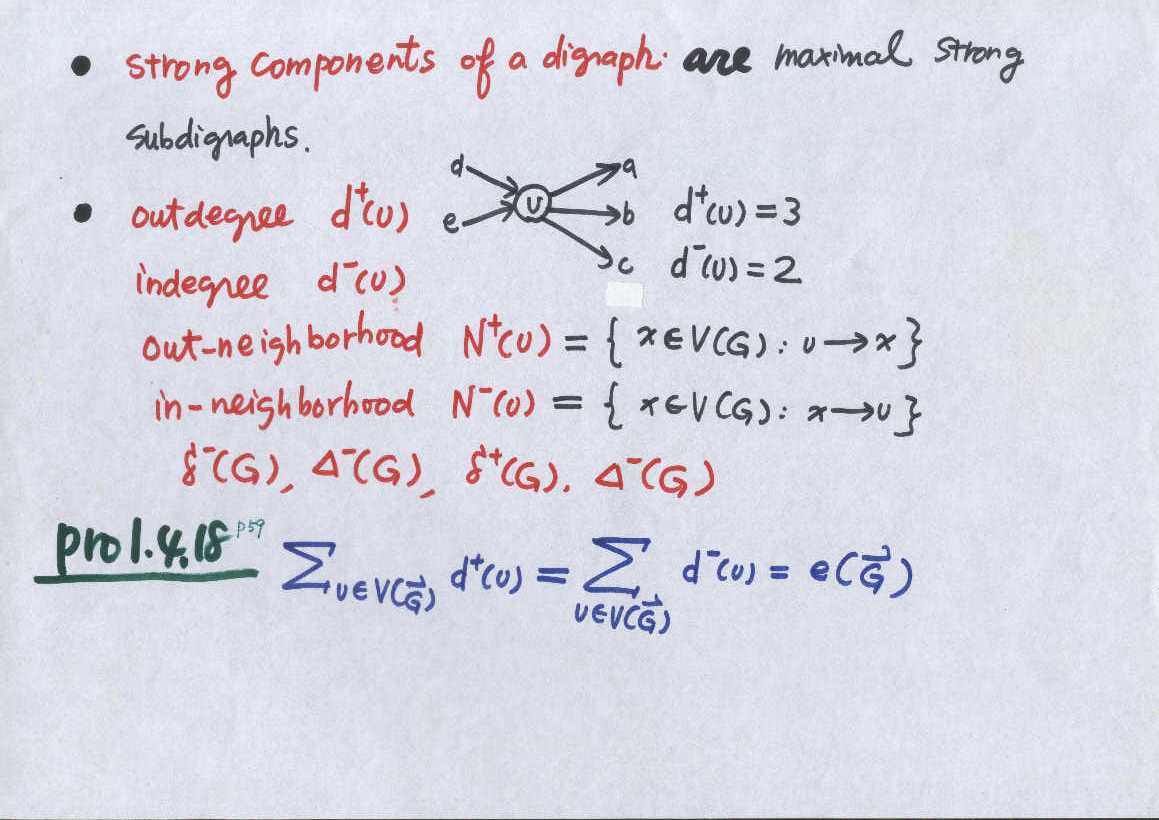 • strong components of a digraph. are maximal strong
subdigraphs.
d a
• outdegree d⁺(v) e v b d⁺(v) = 3
indegree d⁻(v) c d⁻(v) = 2
out-neighborhood N⁺(v) = { x ∈ V(G) : v → x }
in-neighborhood N⁻(v) = { x ∈ V(G) : x → v }
δ⁻(G), Δ⁻(G), δ⁺(G). Δ⁻(G)
pro 1.4.18 p59 ∑_{v ∈ V(G⃗)} d⁺(v) = ∑_{v ∈ V(G⃗)} d⁻(v) = e(G⃗)